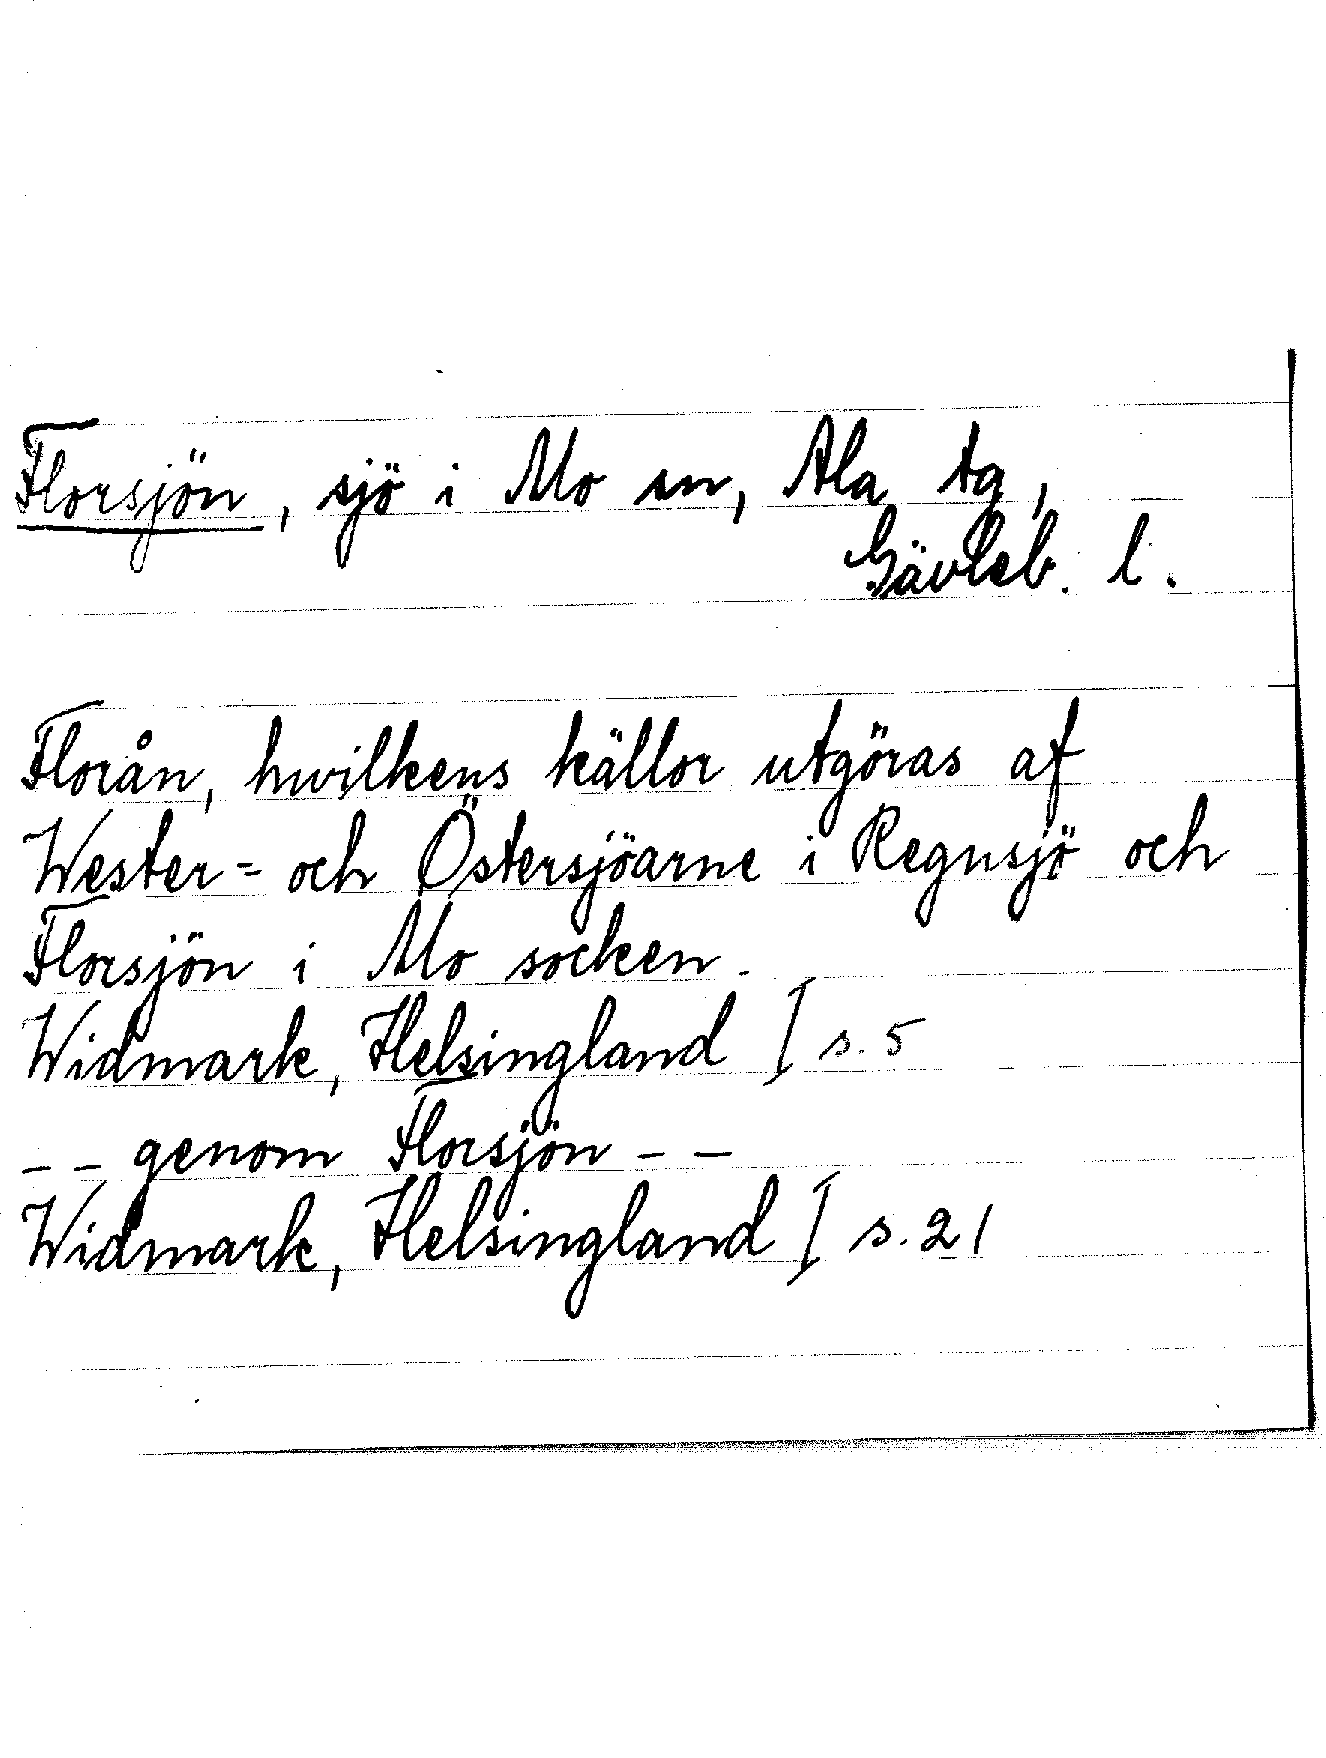 Florsjön, sjö i Mo sn, Ala tg,
Gävleb. l.
Florån, hwilkens källor utgöras af
Wester= och Östersjöarne i Regnsjö och
Florsjön i Mo socken.
Widmark, Helsingland I s. 5
-- genom Florsjön --
Widmark, Helsingland I s. 21